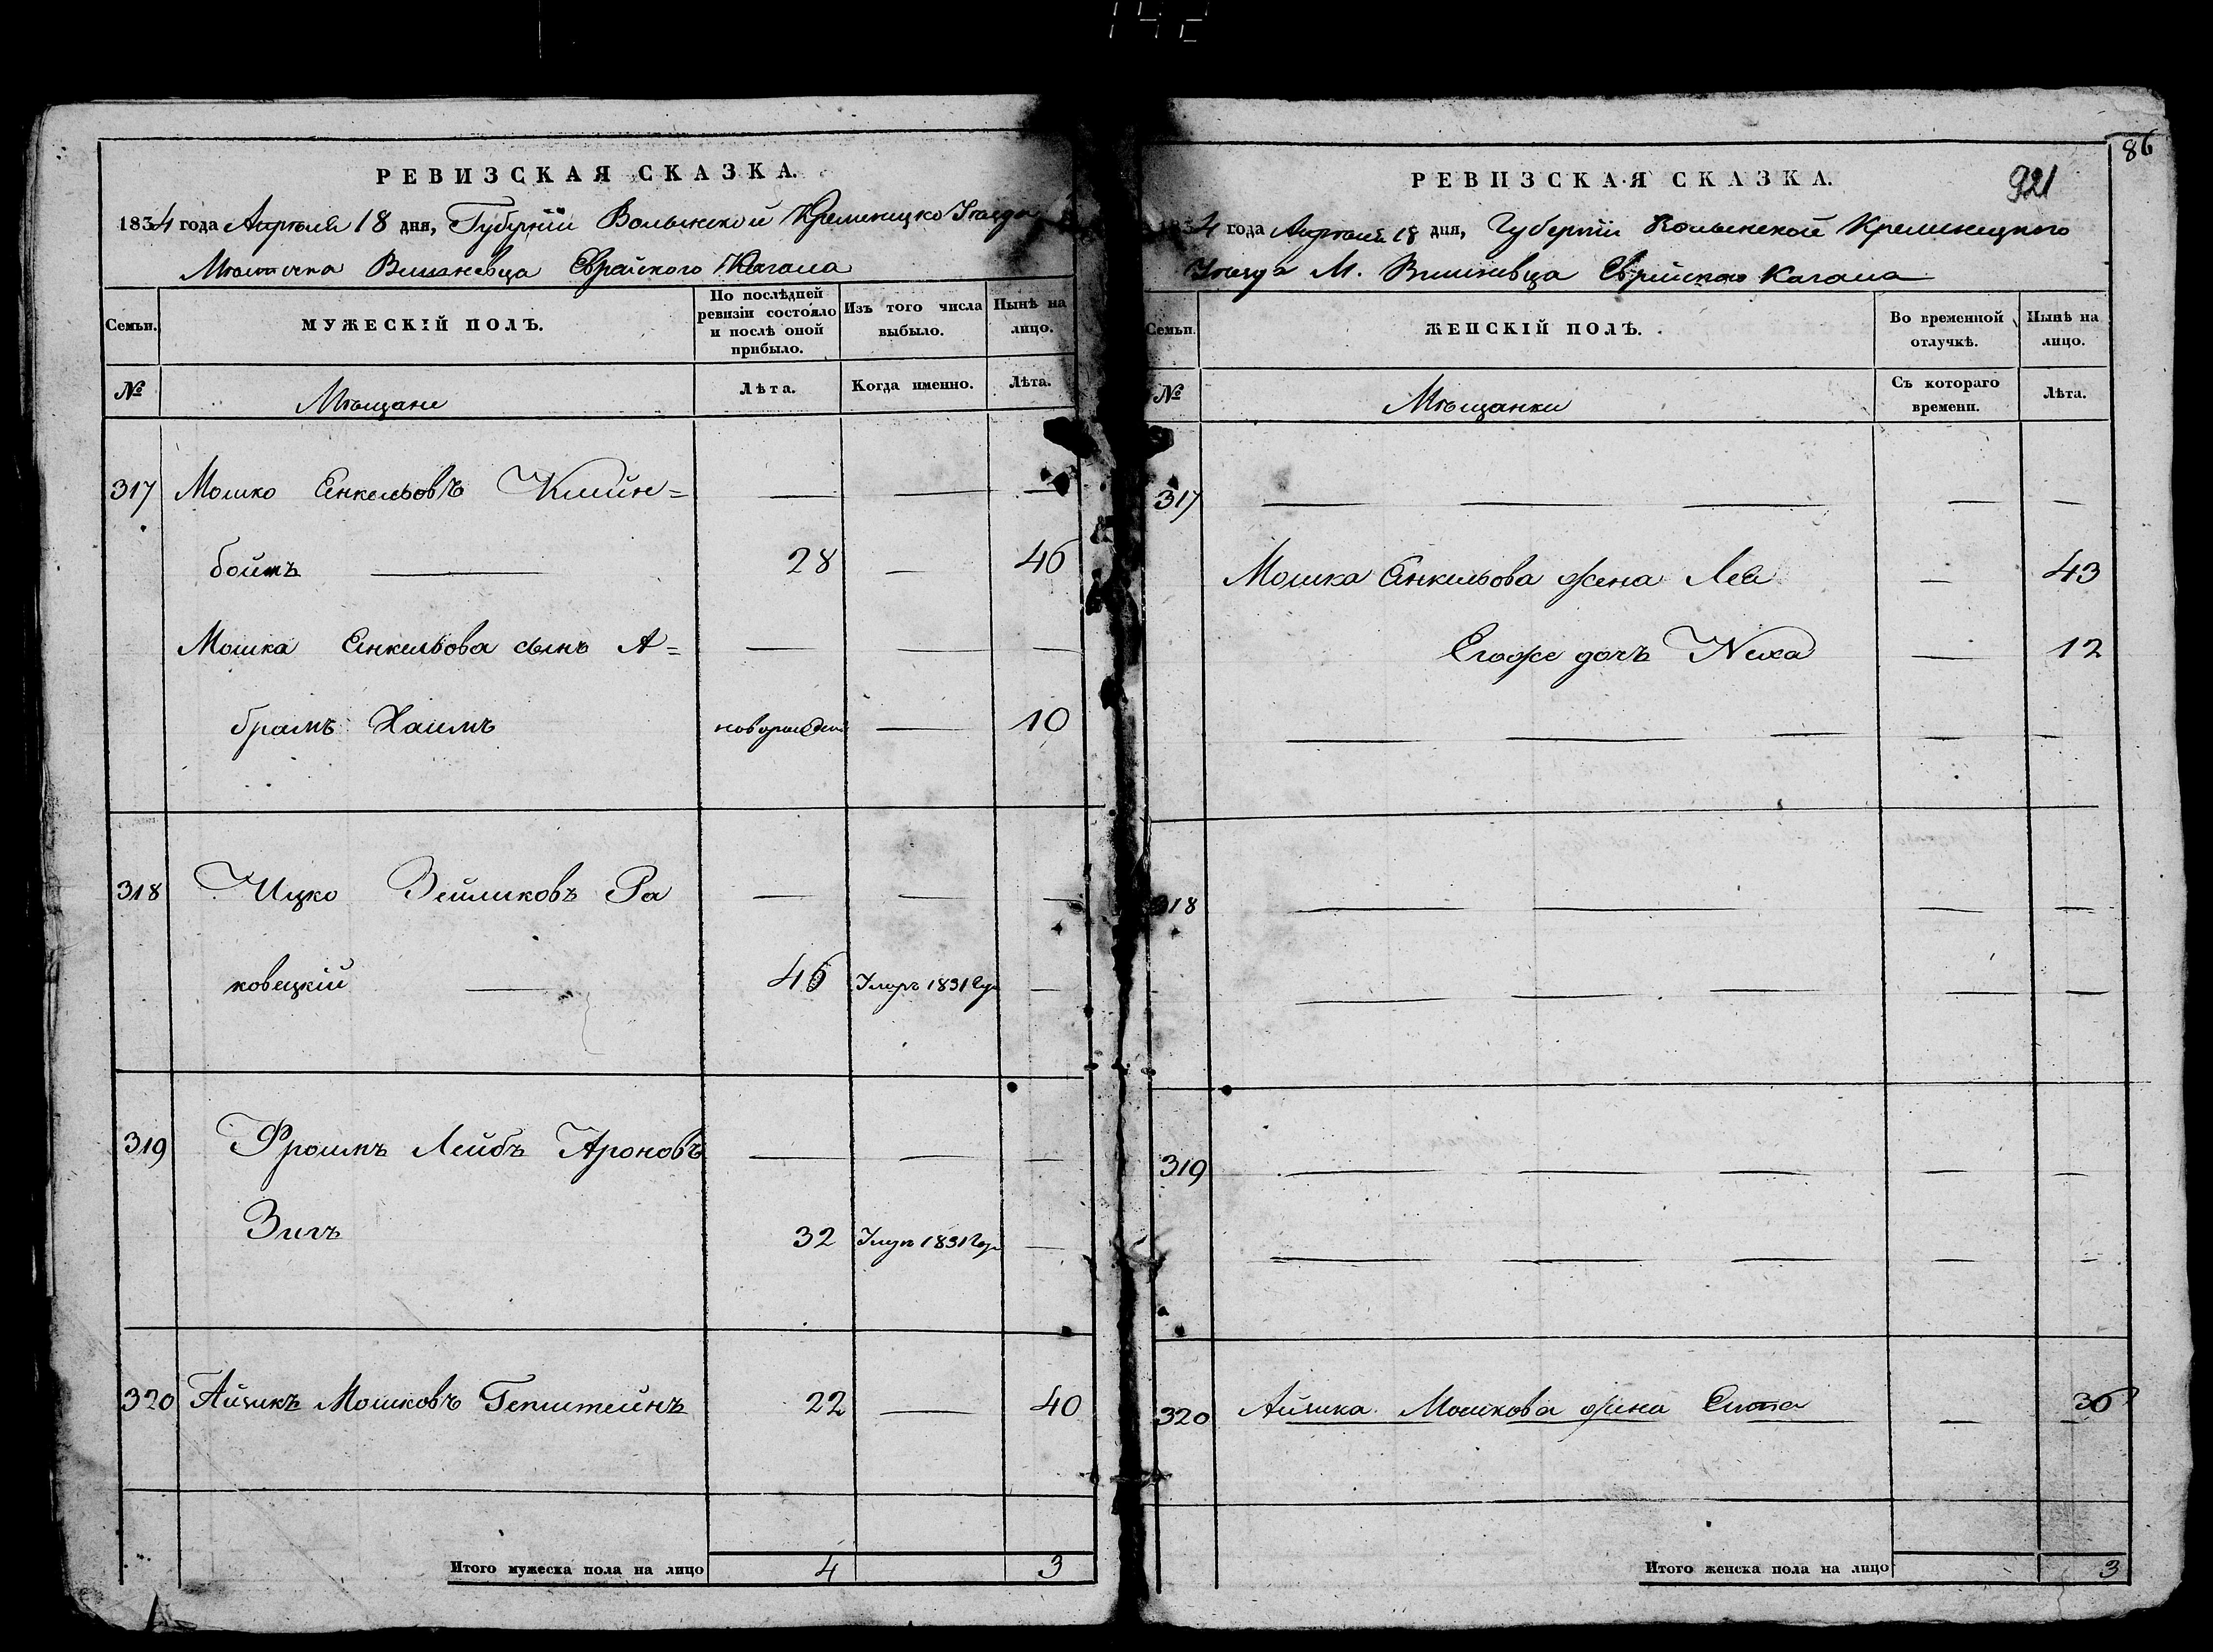 142
РЕВИЗСКАЯ СКАЗКА.
1834 года Апрѣля 18 дня, Губерніи Волынской Кременецко Уѣзда
Мѣстечка Вишневца Еврейского Кагала
Семьи.
МУЖЕСКІЙ ПОЛЪ.
По послѣдней ревизіи состояло и послѣ оной прибыло.
Изъ того числа выбыло.
Нынѣ на лицо.
№
Мѣщане
Лѣта.
Когда именно.
Лѣта.
317 Мошко Енкельовъ Клейн=
боймъ 28 46
Мошка Енкельова сынъ А=
брамъ Хаимъ 10
318 Ицко Зейликовъ Ра
ковецкій 46 1831
319 Фроимъ Лейбъ Ароновъ
Зигъ 32 1831
320 Айзикъ Мошковъ Гепштейнъ 22 40
Итого мужеска пола на лицо 4 3
86
921
РЕВИЗСКАЯ СКАЗКА.
1834 года Апрѣля 18 дня, Губерніи Волынской Кременецкого
Уѣзда М. Вишневца Еврейского Кагала
Семьи.
ЖЕНСКІЙ ПОЛЪ.
Во временной отлучкѣ.
Нынѣ на лицо.
№
Мѣщанки
Съ котораго времени.
Лѣта.
317
Мошка Енкельова жена Лея 43
Егоже дочь Неха 12
318
319
320 Айзика Мошкова жена 36
Итого женска пола на лицо 3